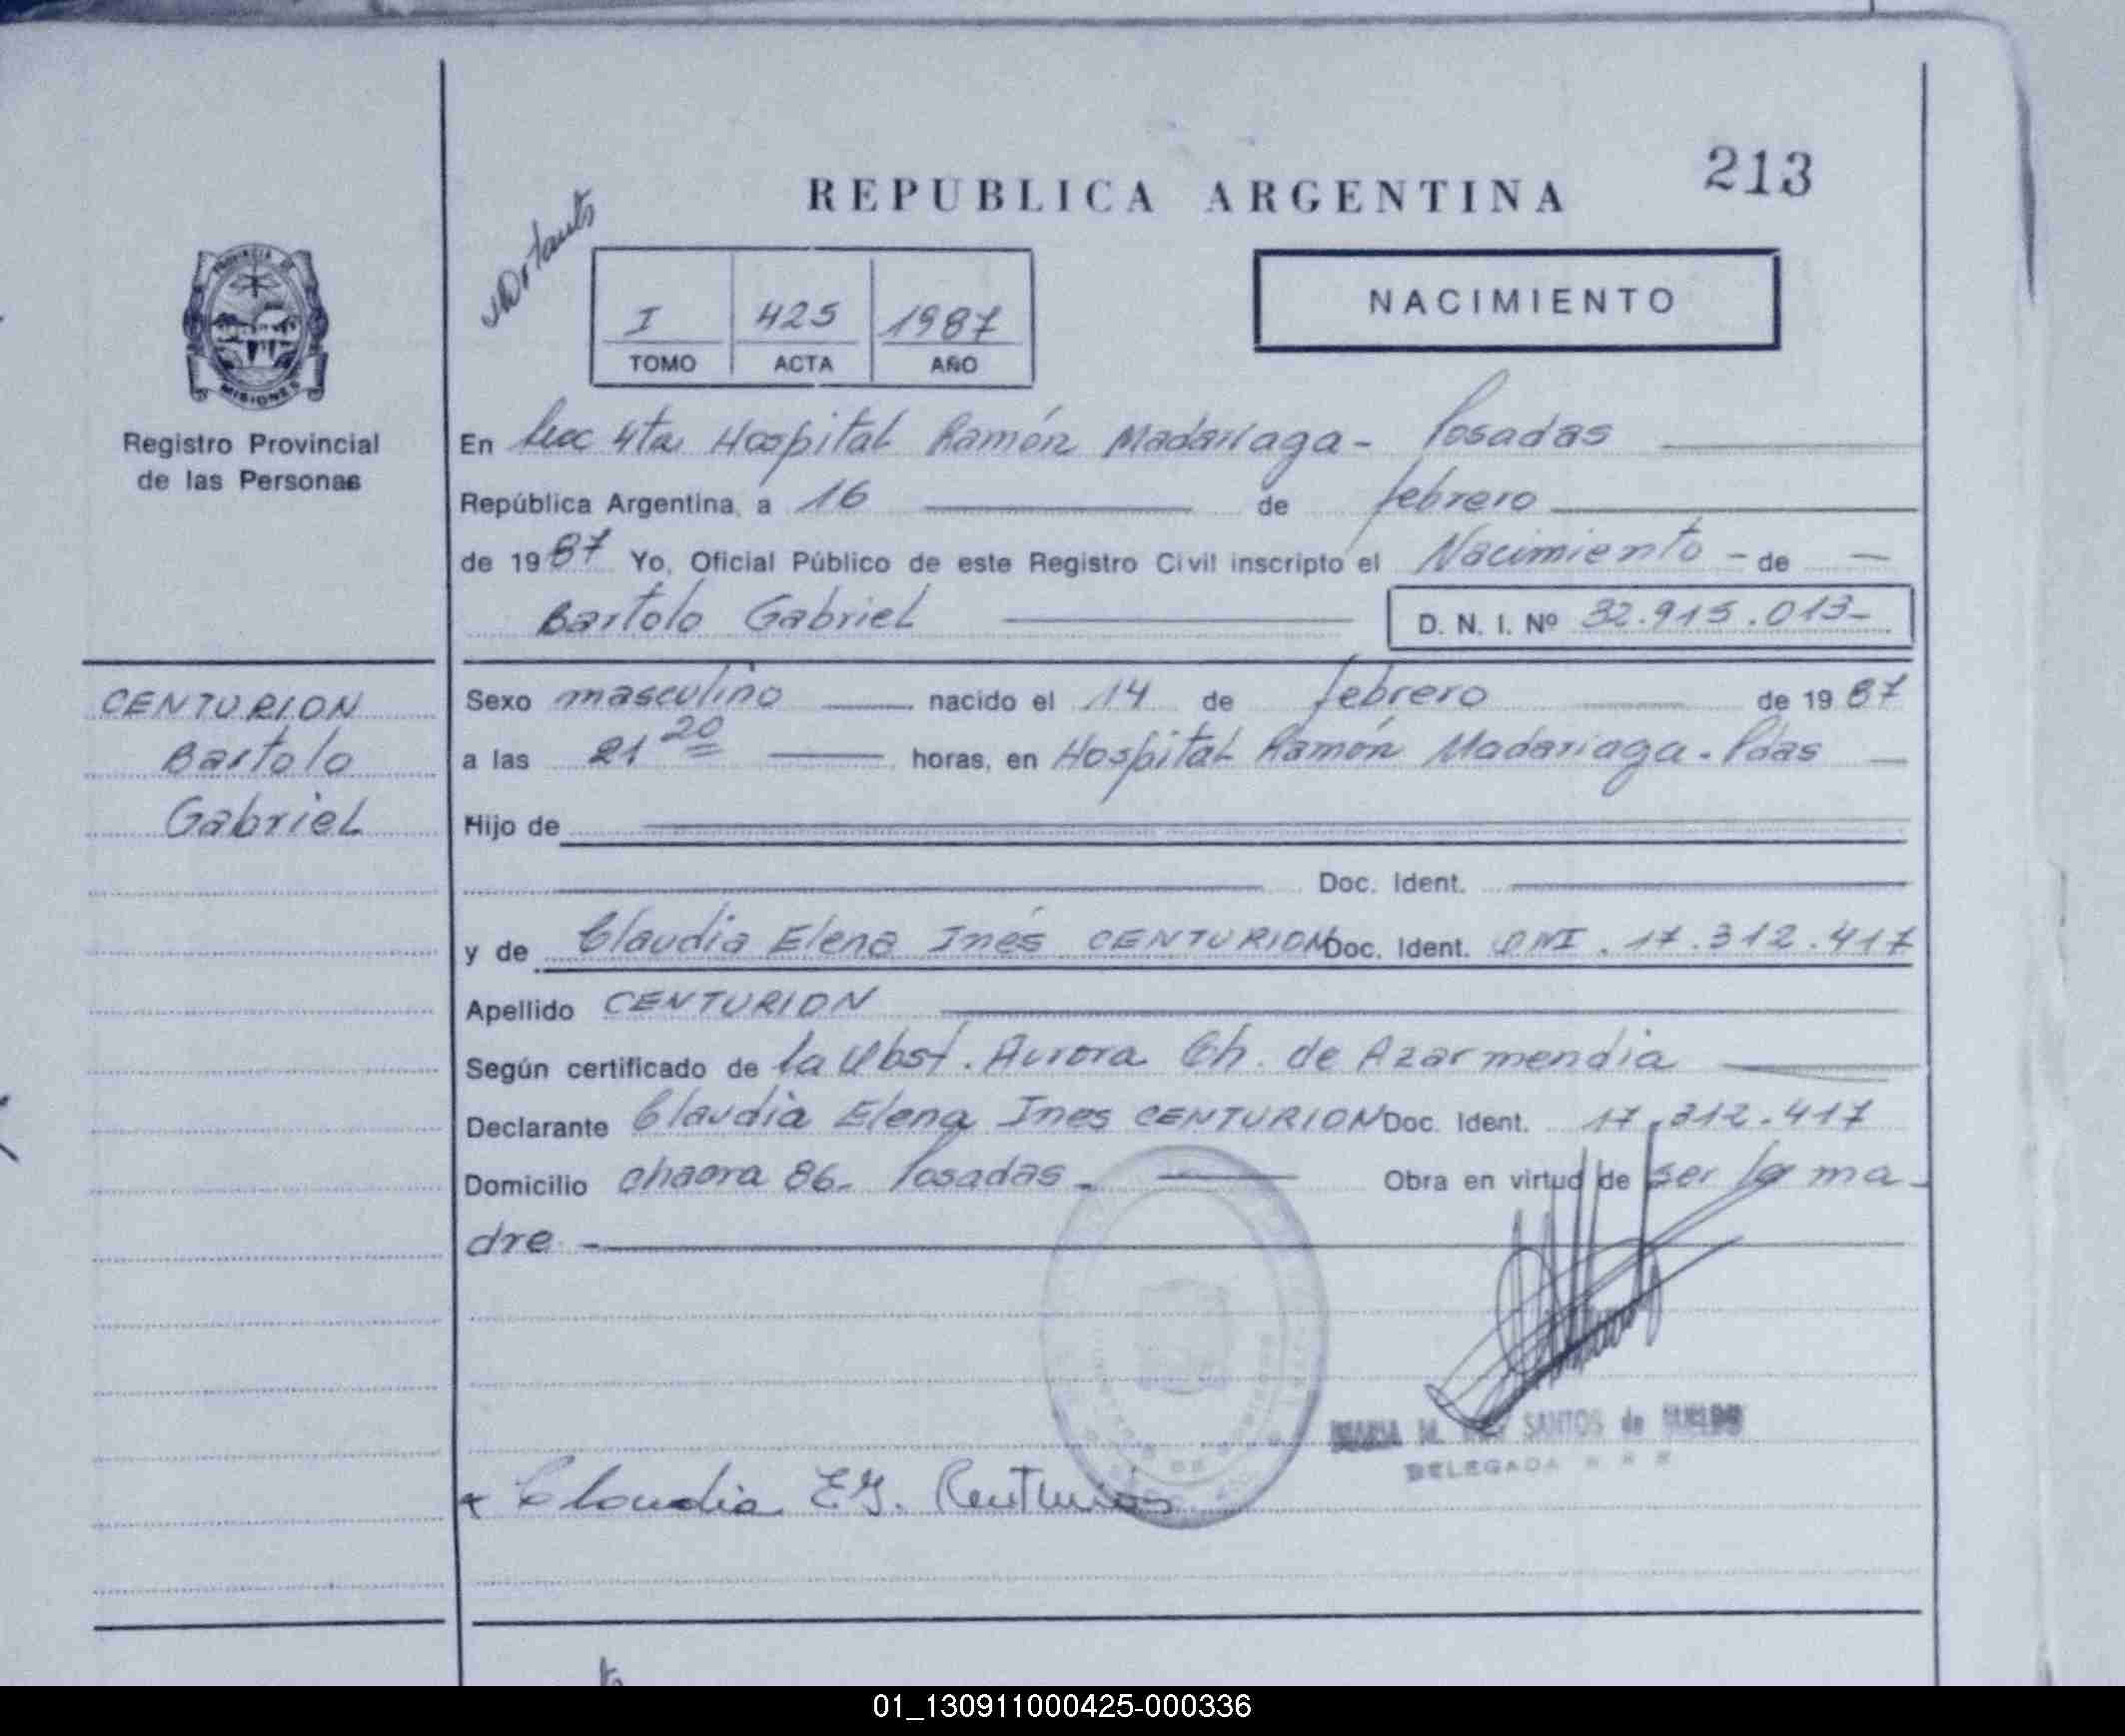 REPUBLICA ARGENTINA
213
PROVINCIA DE
MISIONES
Registro Provincial
de las Personas
I
TOMO
425
ACTA
1987
AÑO
NACIMIENTO
En Secc 4ta Hospital Ramón Madariaga - Posadas
República Argentina, a 16 de febrero
de 1987 Yo, Oficial Público de este Registro Civil inscripto el Nacimiento - de
Bartolo Gabriel
D. N. I. Nº 32.915.013-
CENTURION
Bartolo
Gabriel
Sexo masculino nacido el 14 de febrero de 1987
a las 21 20 horas, en Hospital Ramón Madariaga - Pdas
Hijo de
Doc. Ident.
y de Claudia Elena Inés CENTURION Doc. Ident. DNI. 17.312.417
Apellido CENTURION
Según certificado de la Obst. Aurora Ch. de Azarmendia
Declarante Claudia Elena Ines CENTURION Doc. Ident. 17.312.417
Domicilio chacra 86- Posadas - Obra en virtud de ser la ma-
dre -
MARIA M. SANTOS de
DELEGADA
x Claudia E. I. Centurión
01_130911000425-000336